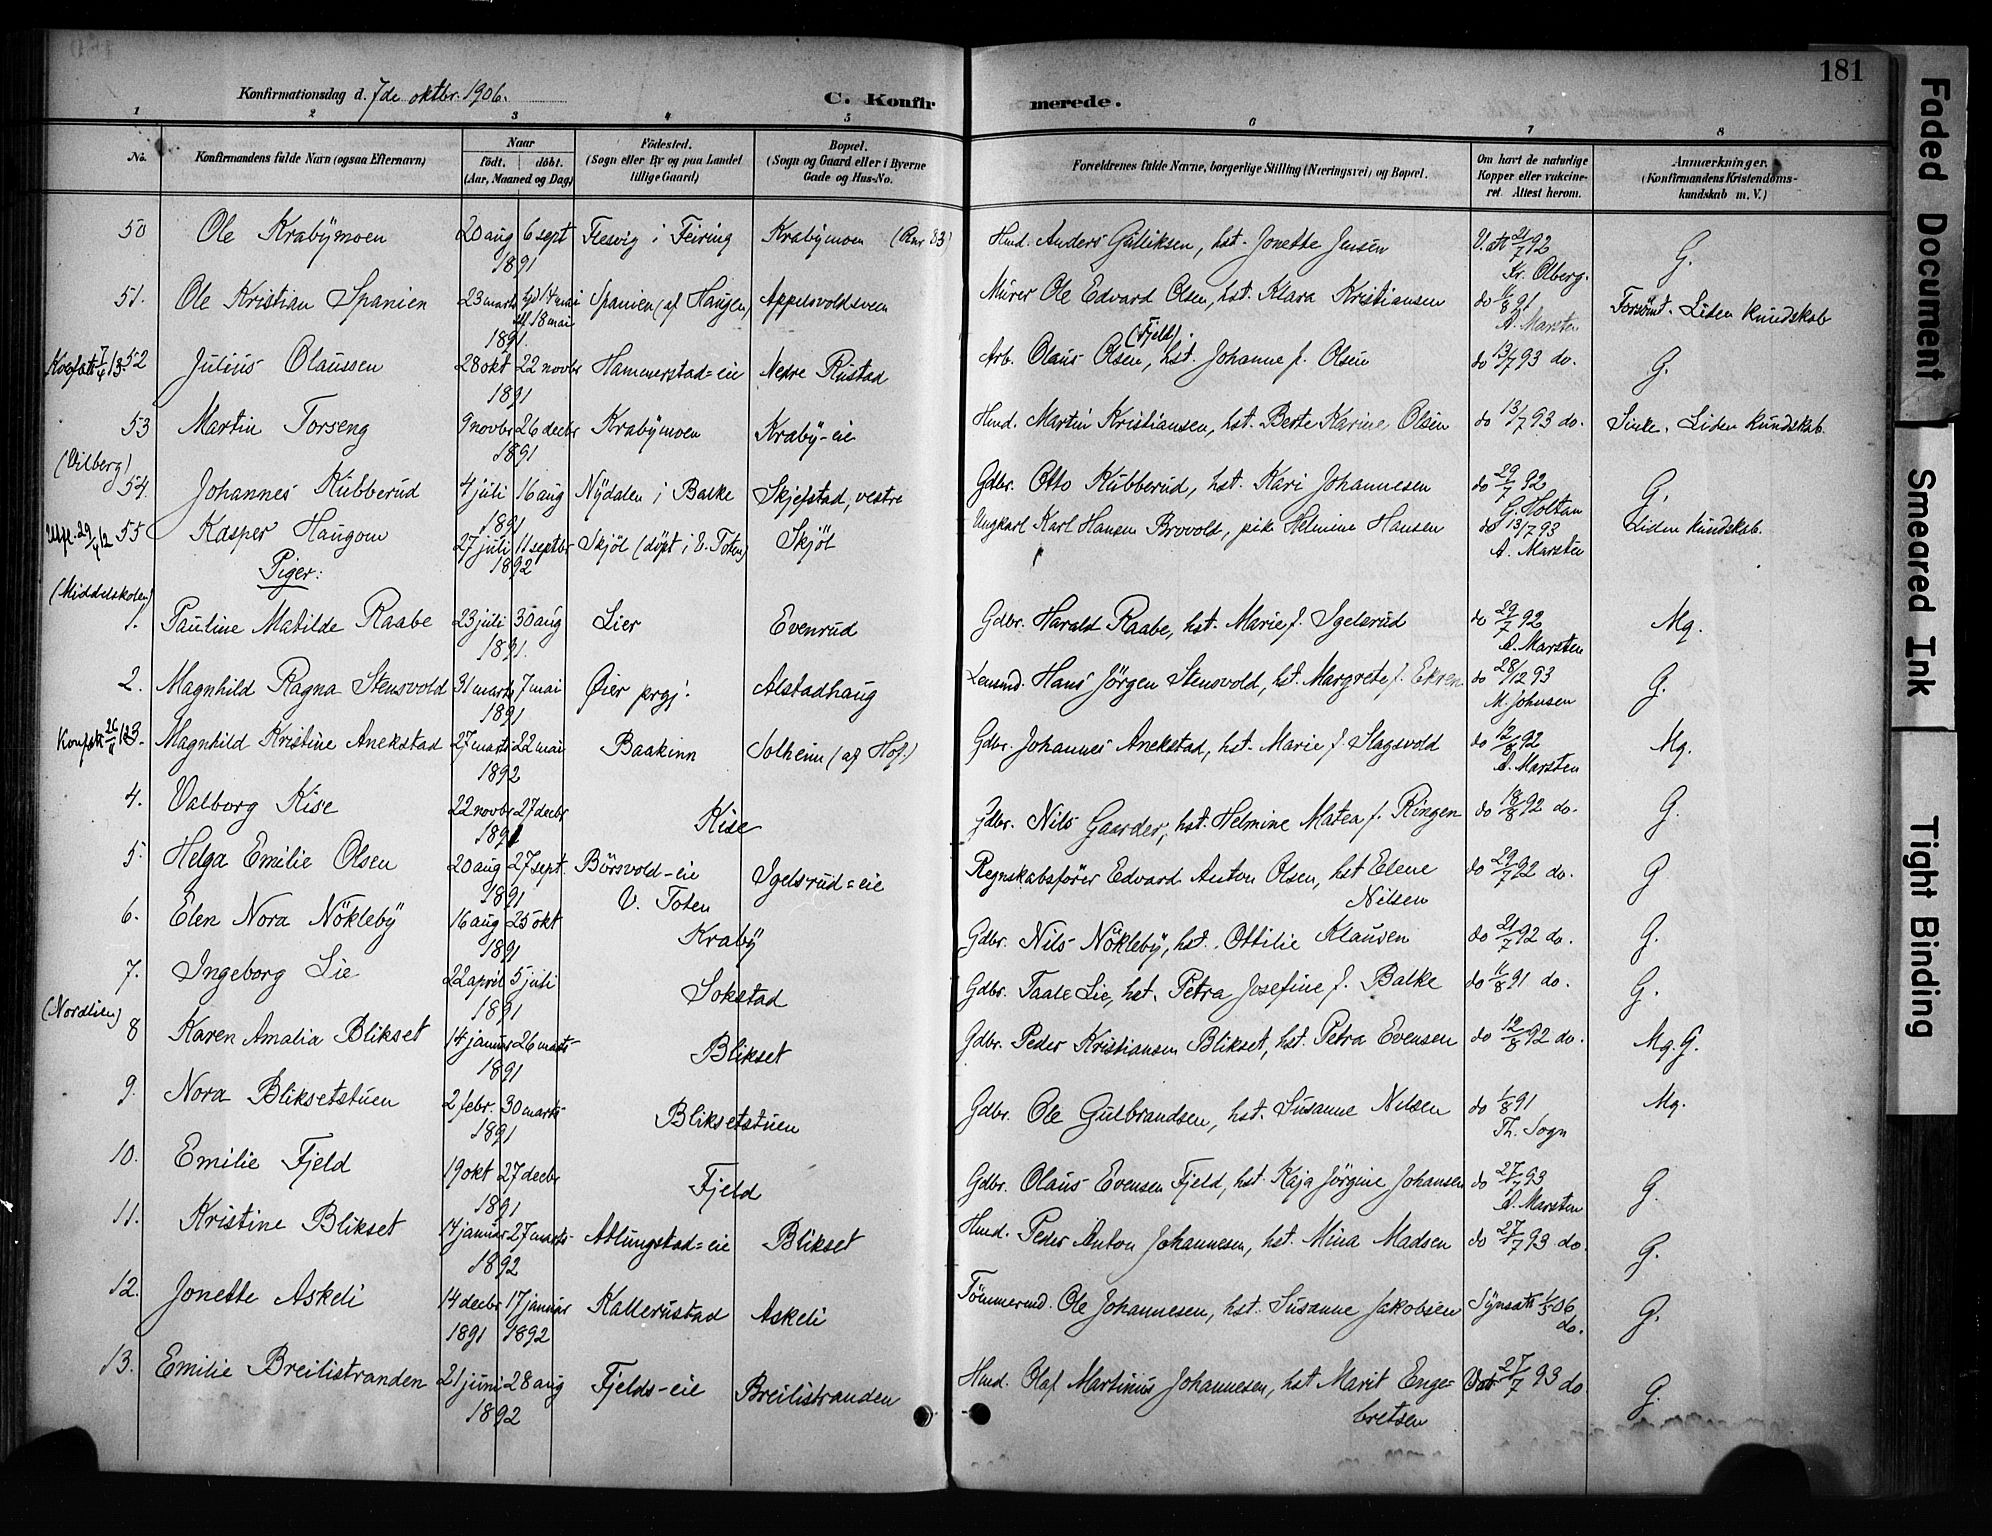 181
Konfirmationsdag d. 7de oktbr. 1906.
C. Konfirmerede.
1 2 3 4 5 6 7 8
No.
Konfirmandens fulde Navn (ogsaa Efternavn)
Naar
födt. döbt.
(Aar, Maaned og Dag)
Födested.
(Sogn eller By og paa Landet
tillige Gaard)
Bopæl.
(Sogn og Gaard eller i Byerne
Gade og Hus-No.
Forældrenes fulde Navne, borgerlige Stilling (Næringsvei) og Bopæl.
Om havt de naturlige
Kopper eller vakcine-
ret Attest herom.
Anmærkninger.
(Konfirmandens Kristendoms-
kundskab m. V.)
50 Ole Krabymoen 20 aug 6 sept Flesvig i Feiring Krabymoen (Bnr 83) Hmd. Anders Gulliksen, hst. Jonette Jensen V. att 21/7 92 G.
1891 Kr. Olberg.
51. Ole Kristian Spanien 23 marts 14 mai Spanien (af Haugen) Appelsvoldsveen Murer Ole Edvard Olsen, hst. Klara Kristiansen do 11/8 91 Forsömt. Liden kundskab
18 mai A. Marsten
1891 (Fjeld)
52 Julius Olaussen 28 okt 22 novbr Hammerstad=eie Nepre Rustad Arb. Olaus Olsen, hst. Johanne f. Olsen do 13/7 93 do. G.
1891
53 Martin Torseng 9 novbr 26 decbr Krabymoen Kraby-eie Hmd. Martin Kristiansen, hst. Berte Karine Olsen do 13/7 93 do. Sinke. Liden kundskab.
1891
(Vilberg)
54. Johannes Kubberud 4 juli 16 aug Nydalen i Balke Skjefstad, vestre Gdbr. Otto Kubberud, hst. Kari Johannesen do 29/7 92 G.
1891 G. Holtan
55 Kasper Haugom 27 juli 11 septbr Skjöl (döpt i V. Toten) Skjöl Ungkarl Karl Hansen Brovold, pik Helmine Hansen do 13/7 93 Liden kundskab.
1892 A. Marsten
Piger:
(Middelskolen)
1. Pauline Matilde Raabe 23 juli 30 aug Lier Evenrud Gdbr. Harald Raabe, hst. Marie f. Igelsrud do 29/7 92 Mg.
1891. A. Marsten
2. Magnhild Ragna Stensvold 31 marts 7 mai Øier prgj. Alstadhaug Lensmd. Hans Jörgen Stensvold, hst. Margrete f. Ekren do 28/12 93 G.
1891 M. Johnsen
3. Magnhild Kristine Anekstad 27 marts 22 mai Baakinn Solheim (af Hof) Gdbr. Johannes Anekstad, hst. Marie f. Slagsvold do 12/8 92 Mg.
1892 A. Marsten
4. Valborg Kise 22 novbr 27 decbr Kise Gdbr. Nils Gaarder, hst. Helmine Matea f. Ringen do 18/8 92 do. G.
1891
5. Helga Emilie Olsen 20 aug 27 sept. Börsvold-eie Igelsrud=eie Regnskabsförer Edvard Anton Olsen, hst Elene do 29/7 92 do. G
1891 V. Toten Nilsen
6. Elen Nora Nökleby 16 aug 25 okt Kraby Gdbr. Nils Nökleby, hst. Ottilie Klausen do 21/7 92 do. G.
1891
7. Ingeborg Lie 22 april 5 juli Sokstad Gdbr. Taale Lie, hst. Petra Josefine f. Balke do 11/8 91 do. G.
1891
(Nordlien)
8 Karen Amalia Blikset 14 januar 26 marts Blikset Gdbr. Peder Kristiansen Blikset, hst. Petra Evensen do 12/8 92 do. Mg. G.
1891
9. Nora Bliksetstuen 2 febr. 30 marts Bliksetstuen Gdbr. Ole Gulbrandsen, hst. Susanne Nilsen do 1/8 91 Mg.
1891 Th. Sogn
10. Emilie Fjeld 19 okt 27 decbr Fjeld Gdbr. Olaus Evensen Fjeld, hst. Kaja Jörgine Johansen do 27/7 93 G.
1891 A. Marsten
11. Kristine Blikset 14 januar 27 marts Ablungstad=eie Blikset Hmd. Peder Anton Johannesen, hst. Mina Madsen do 27/7 93 do. G.
1892
12. Jonette Askeli 14 decbr 17 januar Kallerustad Askeli Tömmermd. Ole Johannesen, hst. Susanne Jakobsen Synsatt 1/5 06 G.
1891 1892 do.
13. Emilie Breilistranden 21 juni 28 aug Fjelds-eie Breilistranden Hmd. Olaf Martinus Johannesen, hst Marit Enge= 27/7 93 do G.
1892 bretsen
Faded Document
Smeared Ink
Tight Binding